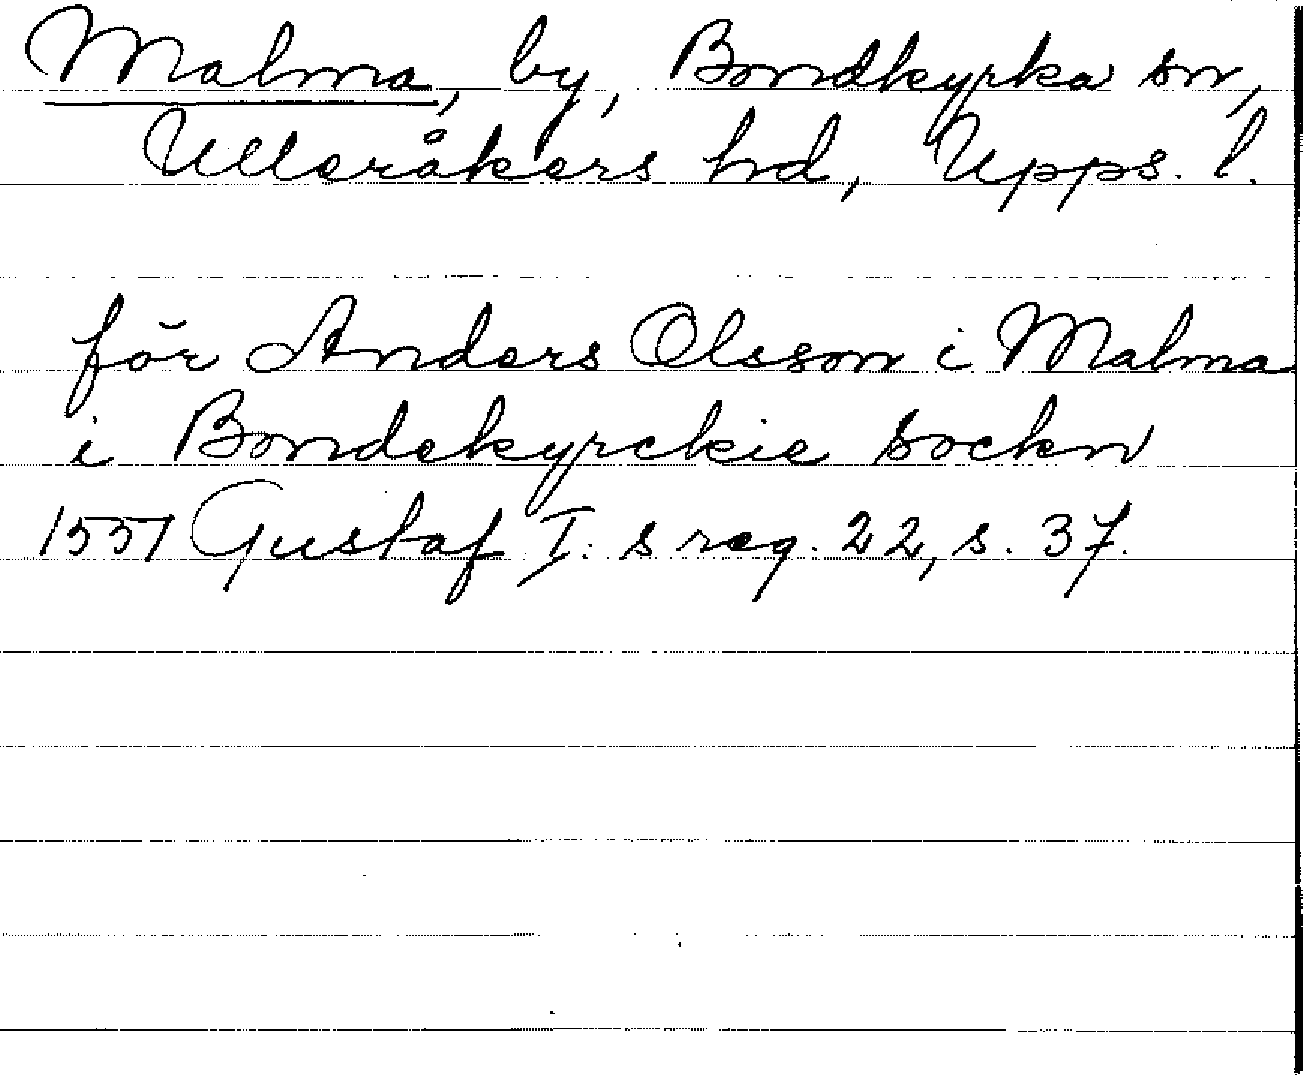 Malma, by, Bondkyrka sn,
Ulleråkers hd, Upps. l.
för Anders Olsson i Malma
i Bondekyrckie sockn
1551 Gustaf I:s reg. 22, s. 37.